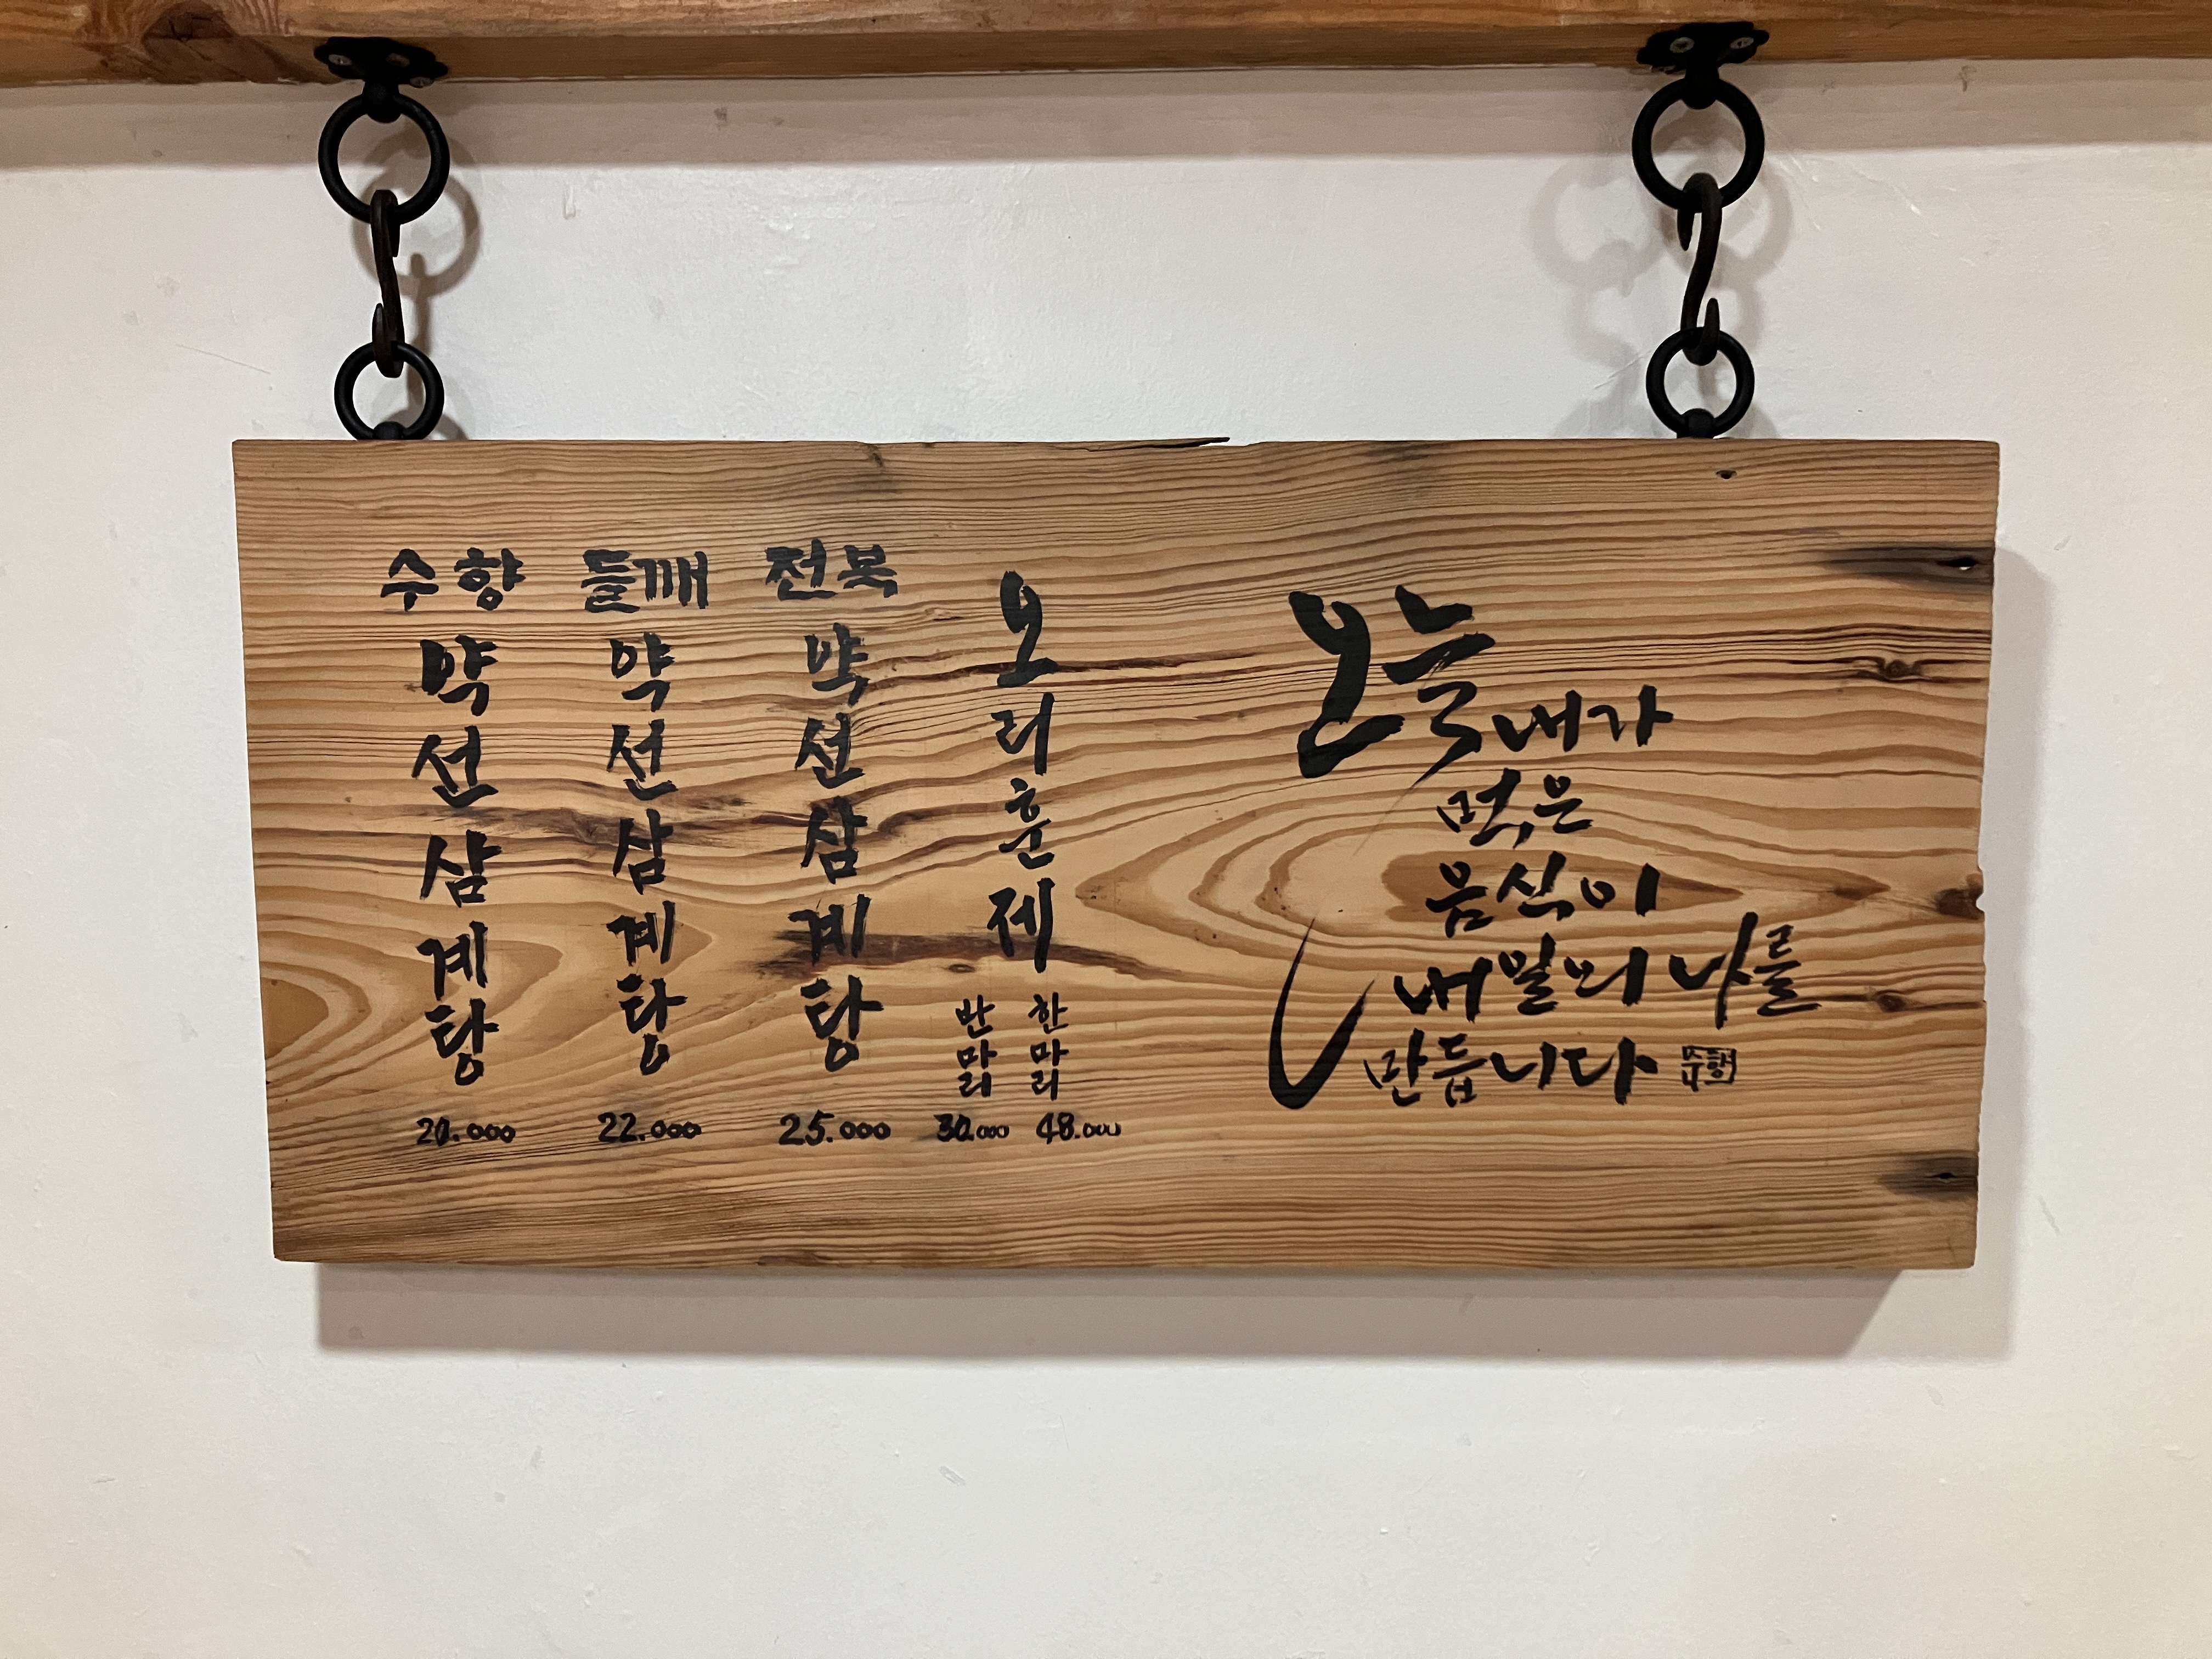 수향 약선삼계탕 20.000
들깨 약선삼계탕 22.000
전복 약선삼계탕 25.000
오리훈제
반마리 30.000
한마리 48.000
오늘 내가
먹은
음식이
내일의 나를
만듭니다
수향